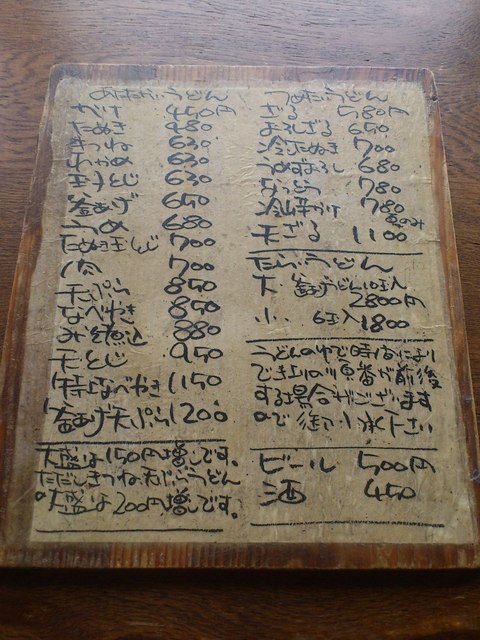 あたたかいうどん
かけ 450円
たぬき 480
きつね 630
わかめ 630
玉子とじ 630
釜あげ 650
うめ 680
たぬき玉とじ 700
肉 700
天ぷら 850
なべやき 850
みそ煮込 880
天とじ 950
特上なべやき 1150
釜あげ天ぷら 1200
大盛は150円増しです。
ただしきつね天ぷらうどん
の大盛は200円増しです。
つめたいうどん
ざる 580円
おろしざる 650
冷したぬき 700
うめおろし 680
なっとう 780
冷山芋かけ 780
夏のみ
天ざる 1100
たらいうどん
大 釜あげうどん10玉入
2800円
小 6玉入 1800
うどんのゆで時間により
でき上りの順番が前後
する場合がございます
ので 御了承下さい
ビール 500円
酒 450